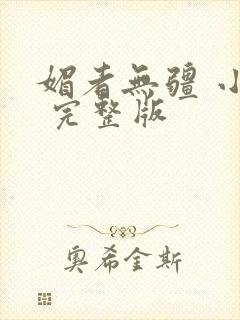 媚者無疆 小
完整版
奧希金斯